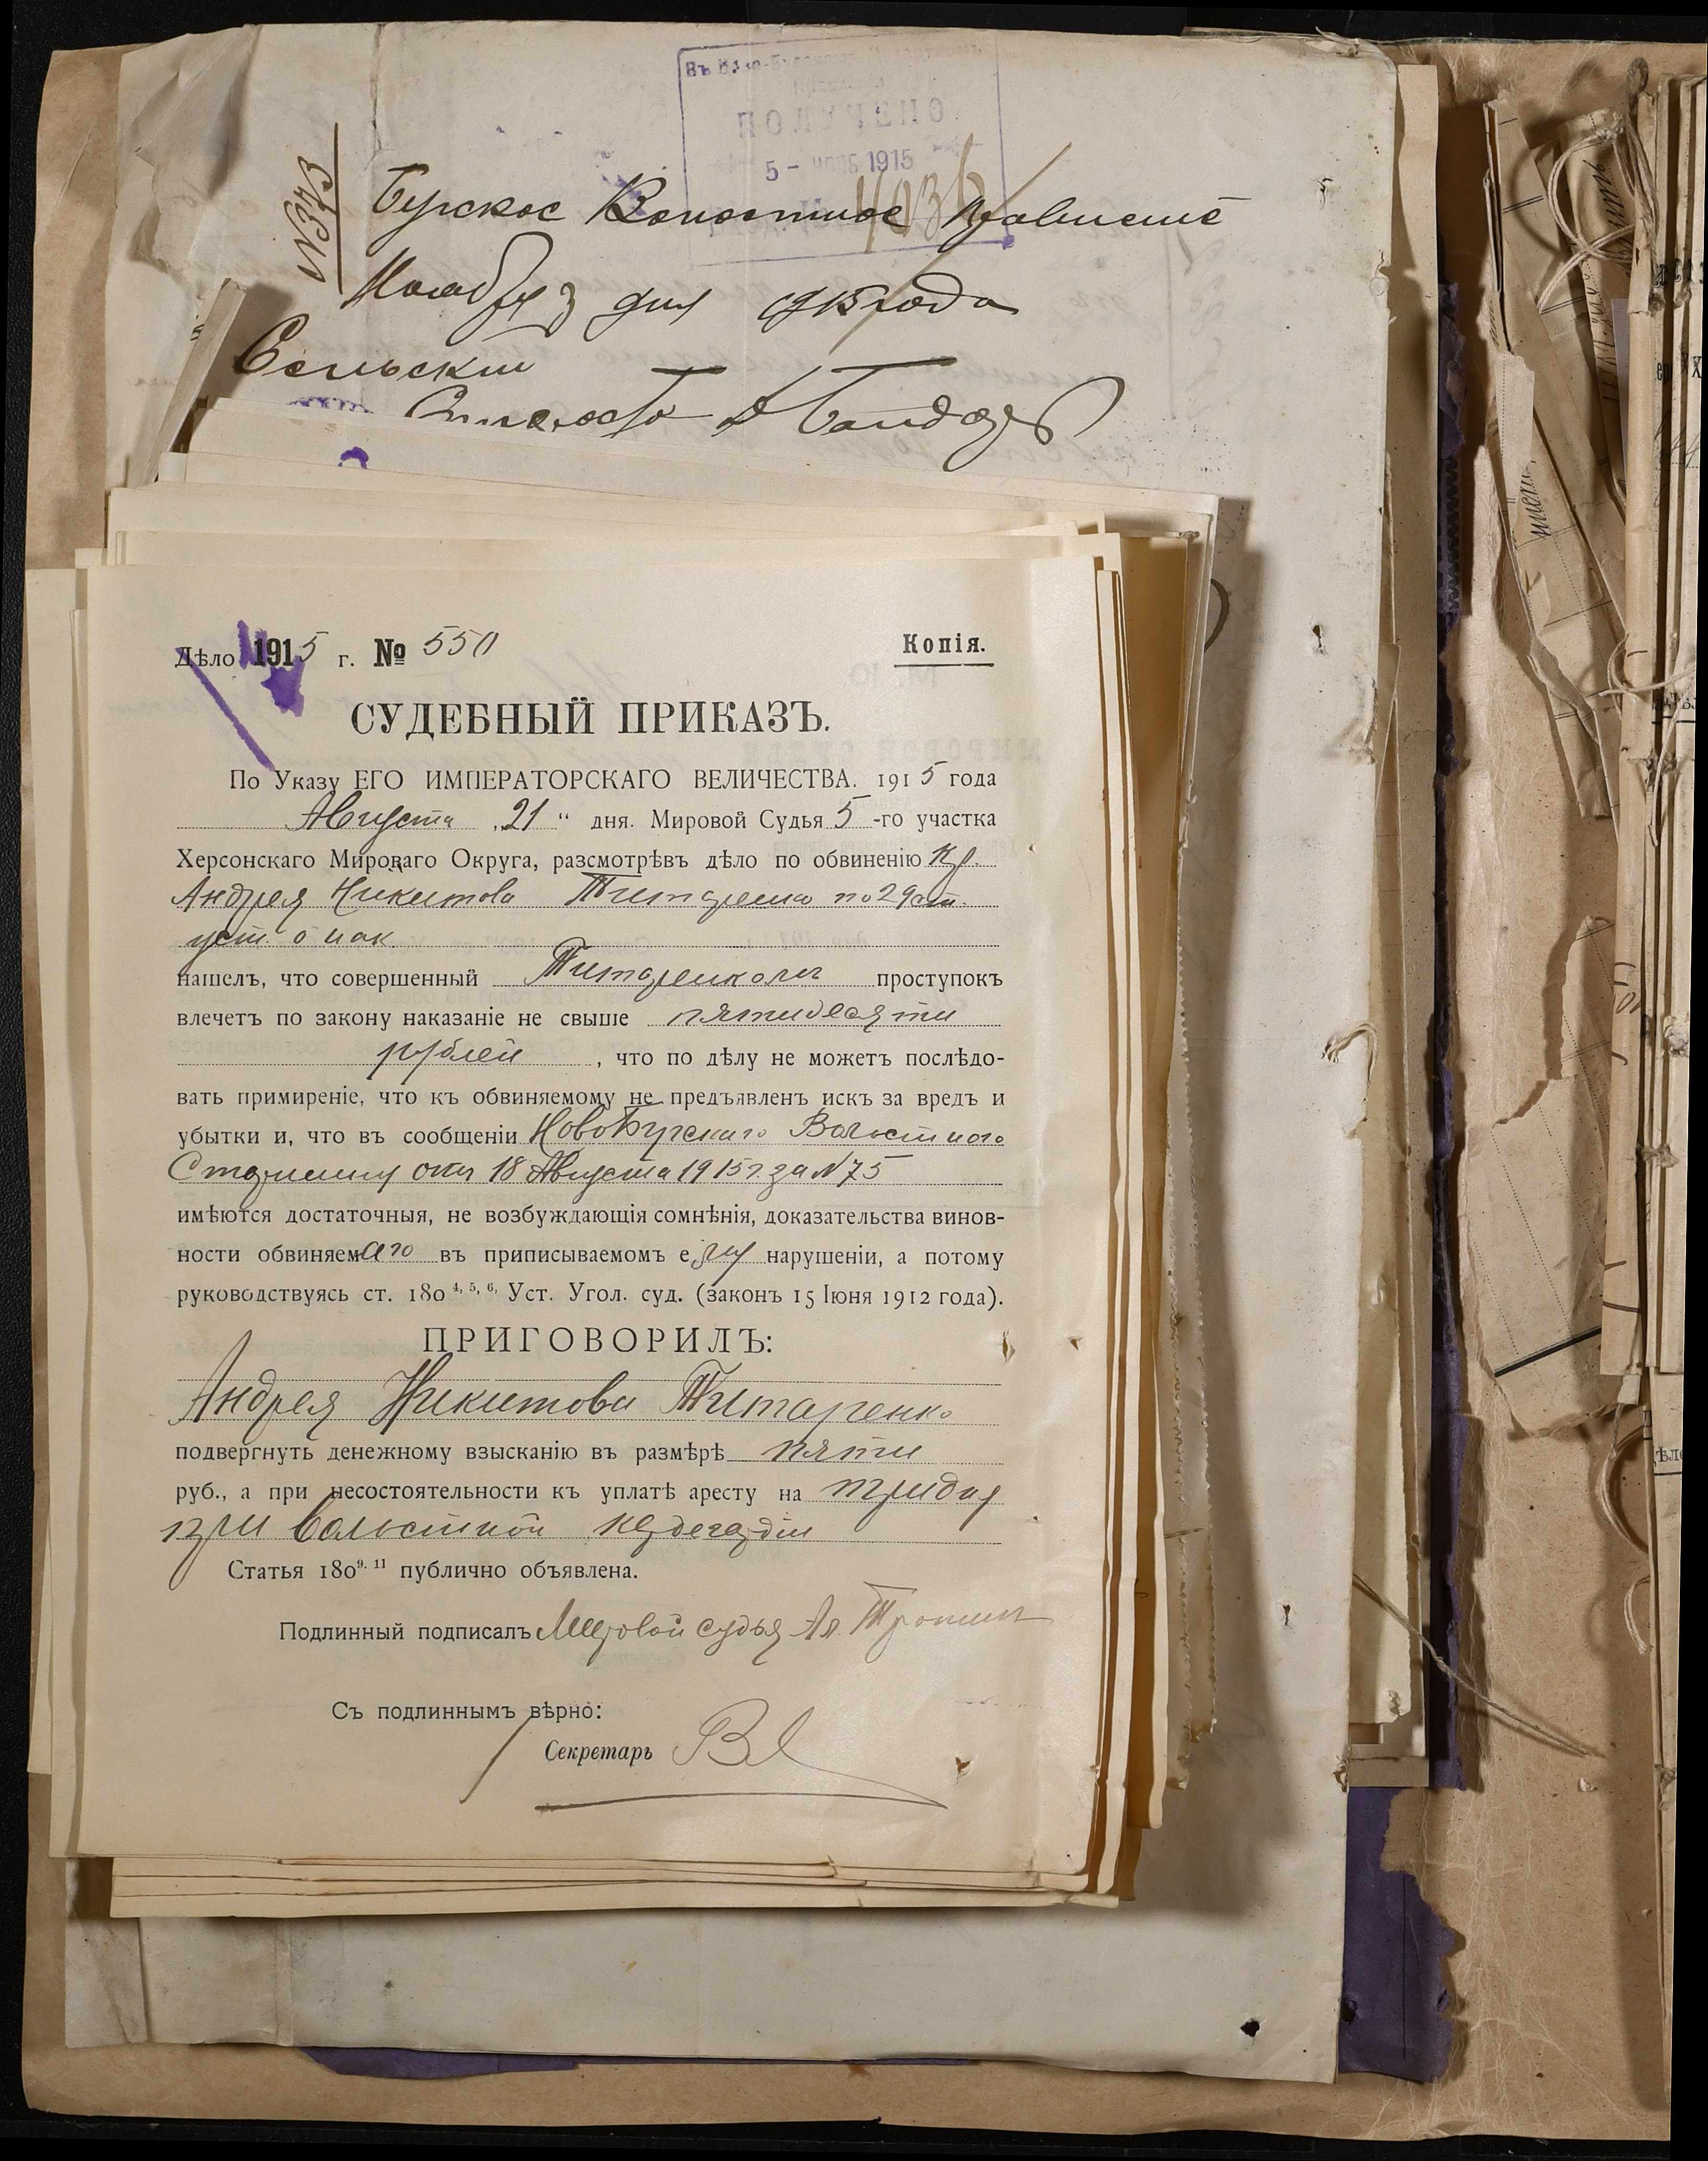 ПОЛУЧЕНО
5 - 1915
№373
Бугское Волостное Правление
Ноября 3 дня 1915 года
Сельский
Дѣло 1915 г. № 550
Копія.
СУДЕБНЫЙ ПРИКАЗЪ.
По Указу ЕГО ИМПЕРАТОРСКАГО ВЕЛИЧЕСТВА. 1915 года
Августа „21“ дня. Мировой Судья 5-го участка
Херсонскаго Мироваго Округа, разсмотрѣвъ дѣло по обвиненію кр.
Андрея Никитова Титаренко по 29 ст.
уст. о нак.
нашелъ, что совершенный Титаренкомъ проступокъ
влечетъ по закону наказаніе не свыше пятидесяти
рублей, что по дѣлу не можетъ послѣдо-
вать примиреніе, что къ обвиняемому не предъявленъ искъ за вредъ и
убытки и, что въ сообщеніи НовоБугскаго Волостного
Старшины отъ 18 Августа 1915 г за N 75
имѣются достаточныя, не возбуждающія сомнѣнія, доказательства винов-
ности обвиняемаго въ приписываемомъ ему нарушеніи, а потому
руководствуясь ст. 180 4, 5, 6, Уст. Угол. суд. (законъ 15 Іюня 1912 года).
ПРИГОВОРИЛЪ:
Андрея Никитова Титаренко
подвергнуть денежному взысканію въ размѣрѣ пяти
руб., а при несостоятельности къ уплатѣ аресту на три дня
при волостной
Статья 180 9. 11 публично объявлена.
Подлинный подписалъ Мировой судья
Съ подлиннымъ вѣрно:
Секретарь